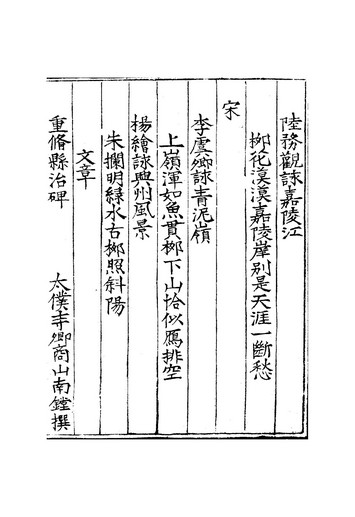 陸務觀詠嘉陵江
栁花漠漠嘉陵岸别是天涯一斷愁
宋
李虞卿詠青泥嶺
上嶺渾如魚貫栁下山恰似鴈排空
楊繪詠興州風景
朱攔明綠水古栁照斜陽
文章
重脩縣治碑　太僕寺卿商山南鏜撰